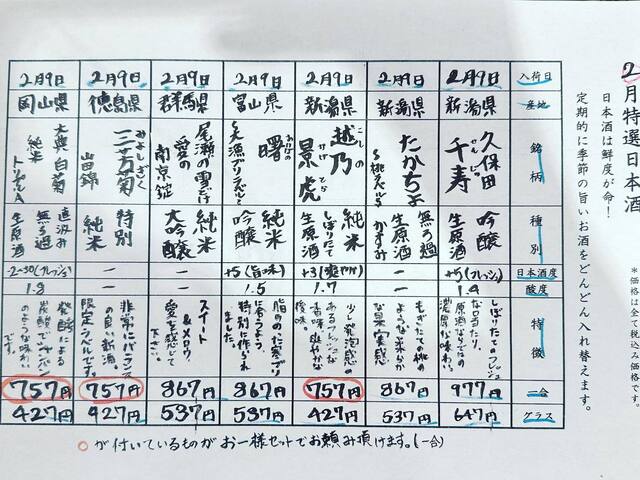 2月特選日本酒
日本酒は鮮度が命!
定期的に季節の旨いお酒をどんどん入れ替えます。
*価格は全て税込み価格です。
入荷日
産地
銘柄
種別
日本酒度
酸度
特徴
一合
グラス
2月9日
新潟県
久保田
千寿
せんじゅ
吟醸
生原酒
+5(フレッシュ)
1.4
しぼりたてのフレッシュ
な口当たり、
原酒ならではの
濃厚な味わい。
977円
647円
2月9日
新潟県
たかちよ
無ろ過
生原酒
かすみ
—
—
もぎたての桃の
ような柔らか
な果実感
867円
537円
2月9日
新潟県
越乃
こしの
景虎
かげとら
純米
しぼりたて
生原酒
+3(爽やか)
1.7
少し発泡感の
あるフレッシュな
香味、爽やかな
後味。
757円
427円
2月9日
富山県
曙
純米
吟醸
+5(旨味)
1.5
脂ののった寒ブリ
に合うよう
特別に作られ
ました。
867円
537円
2月9日
群馬県
尾瀬の雪どけ
愛の
南京錠
純米
大吟醸
—
—
スイート
&メロウ、
愛を感じて
下さい。
867円
537円
2月9日
徳島県
三芳菊
みよしぎく
山田錦
特別
純米
—
—
非常にバランス
の良い新酒。
限定ラベルです。
757円
427円
2月9日
岡山県
大典白菊
純米
トリプルA
直汲み
無ろ過
生原酒
-2~30(フレッシュ)
1.8
発酵による
炭酸でシャンパン
のような味わい
です。
757円
427円
○が付いているものがお一様セットでお頼み頂けます。(一合)